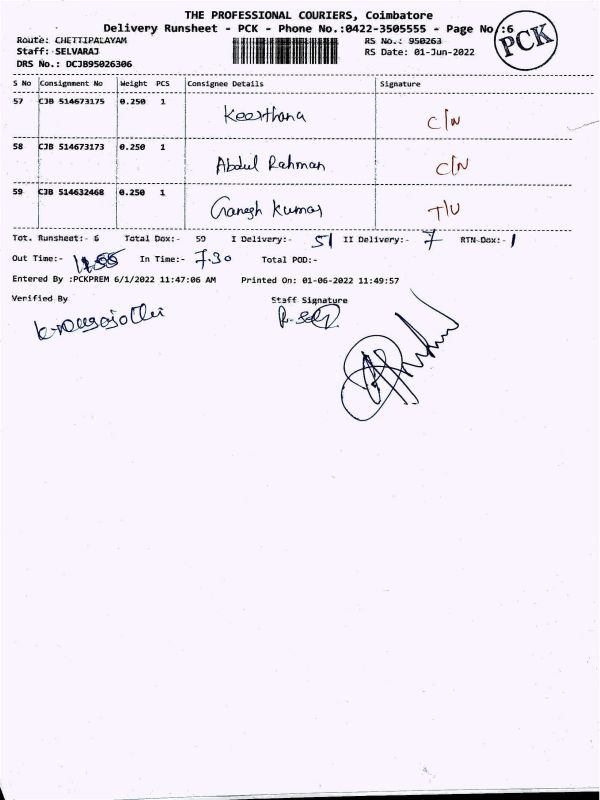 THE PROFESSIONAL COURIERS, Coimbatore
Delivery Runsheet - PCK - Phone No.:0422-3505555 - Page No.:6
PCK
Route: CHETTIPALAYAM
RS No.: 950263
Staff: SELVARAJ
RS Date: 01-Jun-2022
DRS No.: DCJB95026306
S No Consignment No Weight PCS Consignee Details Signature
57 CJB 514673175 0.250 1 Keerthana C/N
58 CJB 514673173 0.250 1 Abdul Rahman C/N
59 CJB 514632468 0.250 1 Ganesh Kumar T/U
Tot. Runsheet:- 6 Total Dox:- 59 I Delivery:- 51 II Delivery:- 7 RTN-Dox:- 1
Out Time:- 11.55 In Time:- 7.30 Total POD:-
Entered By :PCKPREM 6/1/2022 11:47:06 AM Printed On: 01-06-2022 11:49:57
Verified By Staff Signature